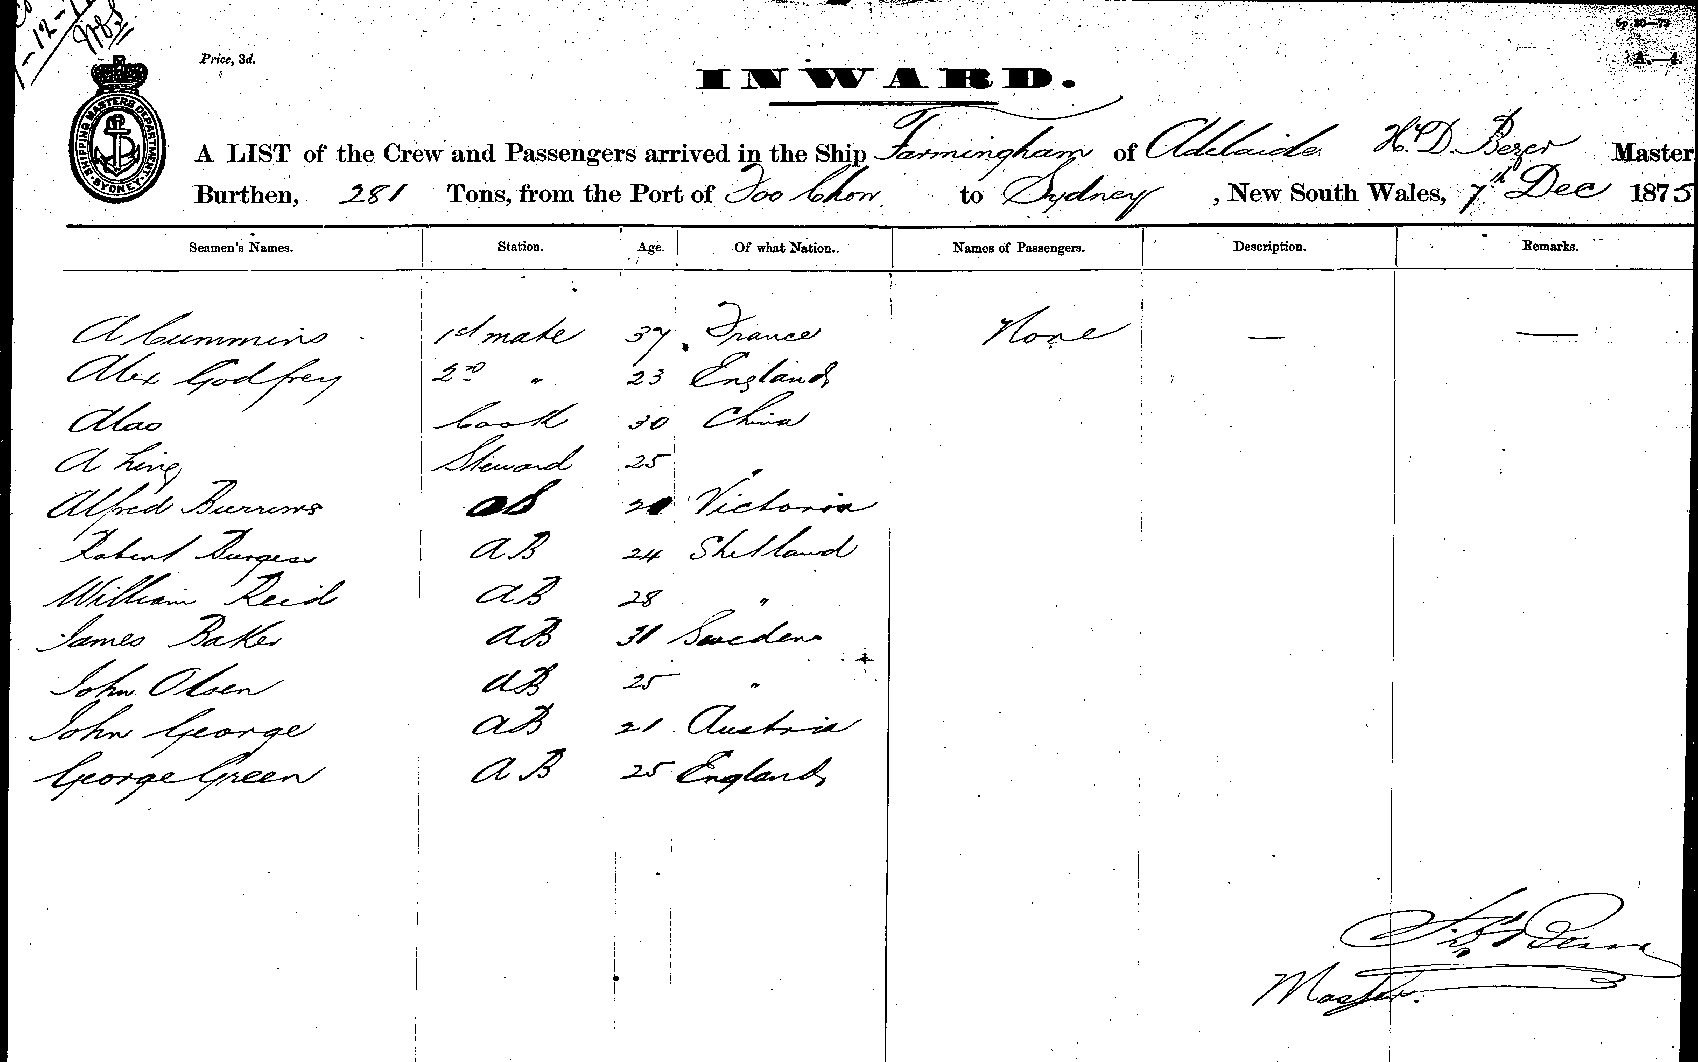 Price, 3d.
INWARD.
SHIPPING MASTERS DEPARTMENT SYDNEY
A LIST of the Crew and Passengers arrived in the Ship Farmingham of Adelaide H. D. Bezer Master,
Burthen, 281 Tons, from the Port of Foo Chow to Sydney, New South Wales, 7th Dec 1875
Seamen's Names. Station. Age. Of what Nation. Names of Passengers. Description. Remarks.
A Cummins 1st mate 37 France None — —
Alex Godfrey 2nd " 23 England
Alao Cook 30 China
A Ling Steward 25 "
Alfred Burrows OS Victoria
Robert Burgess AB 24 Shetland
William Reid AB 28 "
James Baker AB 31 Sweden
John Olsen AB 25 "
John George AB 21 Austria
George Green AB 25 England
Master.